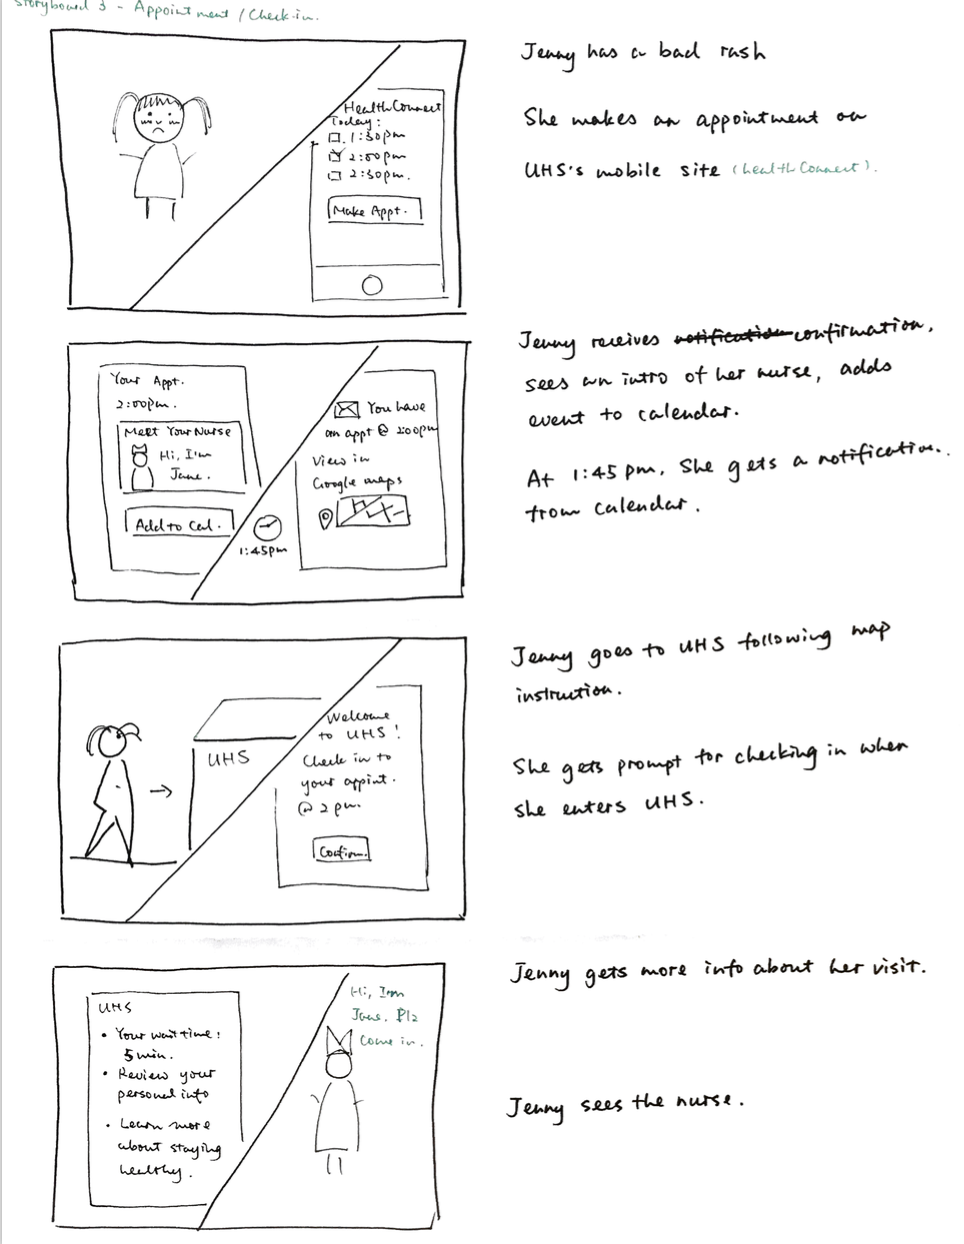 Storyboard 3 - Appointment / Check-in.
HealthConnect
Today:
1:30pm
2:00pm
2:30pm.
Make Appt.
Jenny has a bad rash
She makes an appointment on
UHS's mobile site (HealthConnect).
Your Appt.
2:00pm.
Meet Your Nurse
Hi, I'm
Jane.
Add to Cal.
1:45pm
You have
an appt @ 2:00pm
View in
Google maps
Jenny receives notification confirmation,
sees an intro of her nurse, adds
event to calendar.
At 1:45 pm, She gets a notification.
from calendar.
UHS
Welcome
to UHS!
Check in to
your appint.
@ 2 pm.
Confirm.
Jenny goes to UHS following map
instruction.
She gets prompt for checking in when
she enters UHS.
UHS
• Your wait time:
5 min.
• Review your
personal info
• Learn more
about staying
healthy.
Hi, I'm
Jane. Plz
Come in.
Jenny gets more info about her visit.
Jenny sees the nurse.